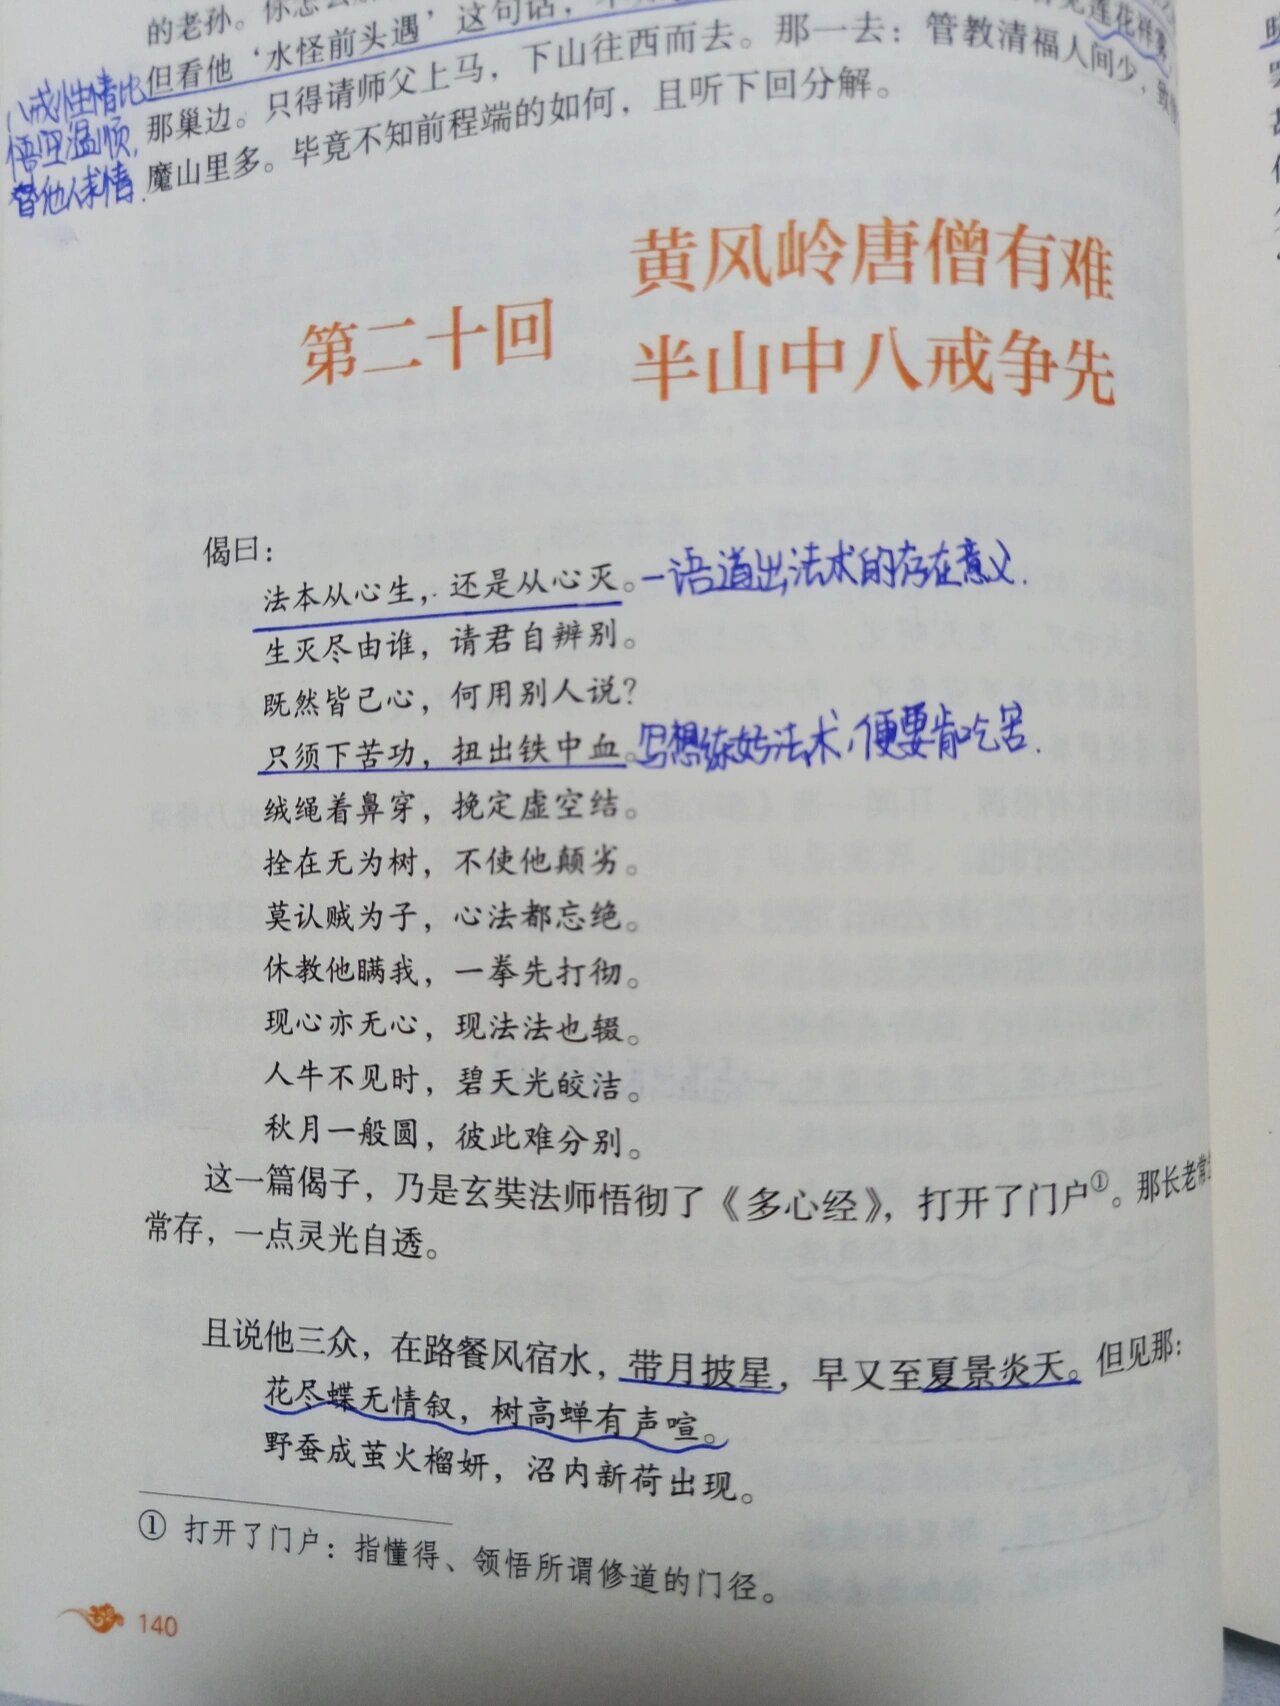 的老孙。你怎么
但看他‘水怪前头遇’这句话，
莲花祥雾，
那巢边。只得请师父上马，下山往西而去。那一去：管教清福人间少，致
魔山里多。毕竟不知前程端的如何，且听下回分解。
八戒性情比
悟空温顺，
替他人求情.
第二十回
黄风岭唐僧有难
半山中八戒争先
偈曰：
法本从心生，还是从心灭。一语道出法术的存在意义.
生灭尽由谁，请君自辨别。
既然皆己心，何用别人说？
只须下苦功，扭出铁中血。写想练好法术，便要肯吃苦.
绒绳着鼻穿，挽定虚空结。
拴在无为树，不使他颠劣。
莫认贼为子，心法都忘绝。
休教他瞒我，一拳先打彻。
现心亦无心，现法法也辍。
人牛不见时，碧天光皎洁。
秋月一般圆，彼此难分别。
这一篇偈子，乃是玄奘法师悟彻了《多心经》，打开了门户①。那长老常
常存，一点灵光自透。
且说他三众，在路餐风宿水，带月披星，早又至夏景炎天。但见那：
花尽蝶无情叙，树高蝉有声喧。
野蚕成茧火榴妍，沼内新荷出现。
① 打开了门户：指懂得、领悟所谓修道的门径。
140